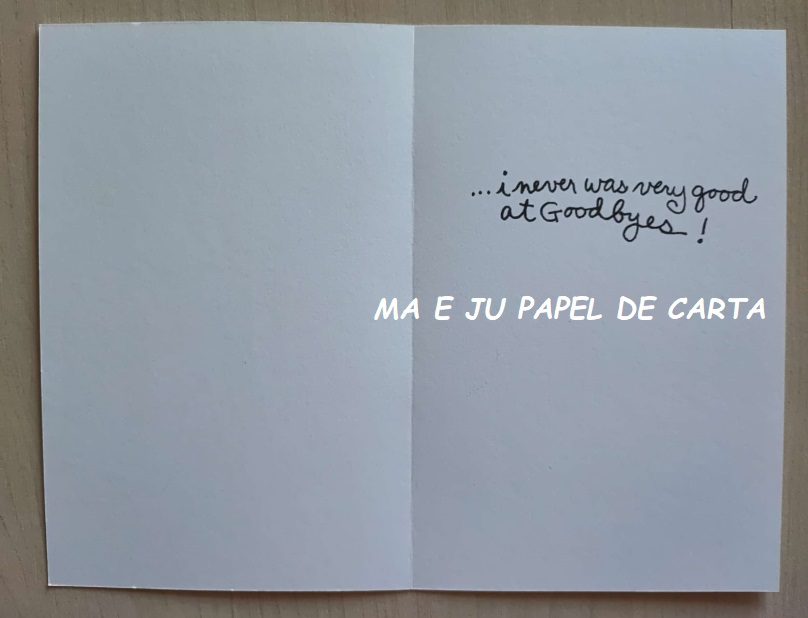 ...i never was very good
at Goodbyes!
MA E JU PAPEL DE CARTA